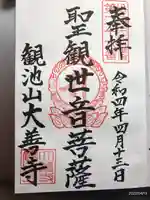 奉拝
令和四年四月十三日
聖観世音菩薩
観池山大善寺